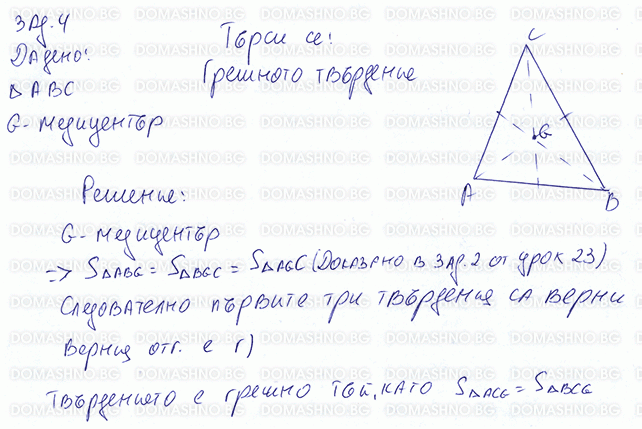 Зад. 4
Дадено:
△ABC
G - медицентър
Търси се:
Грешното твърдение
C
G
A
B
Решение:
G - медицентър
=> S△ABG = S△BGC = S△AGC (Доказано в Зад. 2 от урок 23)
Следователно първите три твърдения са верни
Верния отг. е г)
Твърдението е грешно тъй, като S△ACG = S△BCG
DOMASHNO.BG